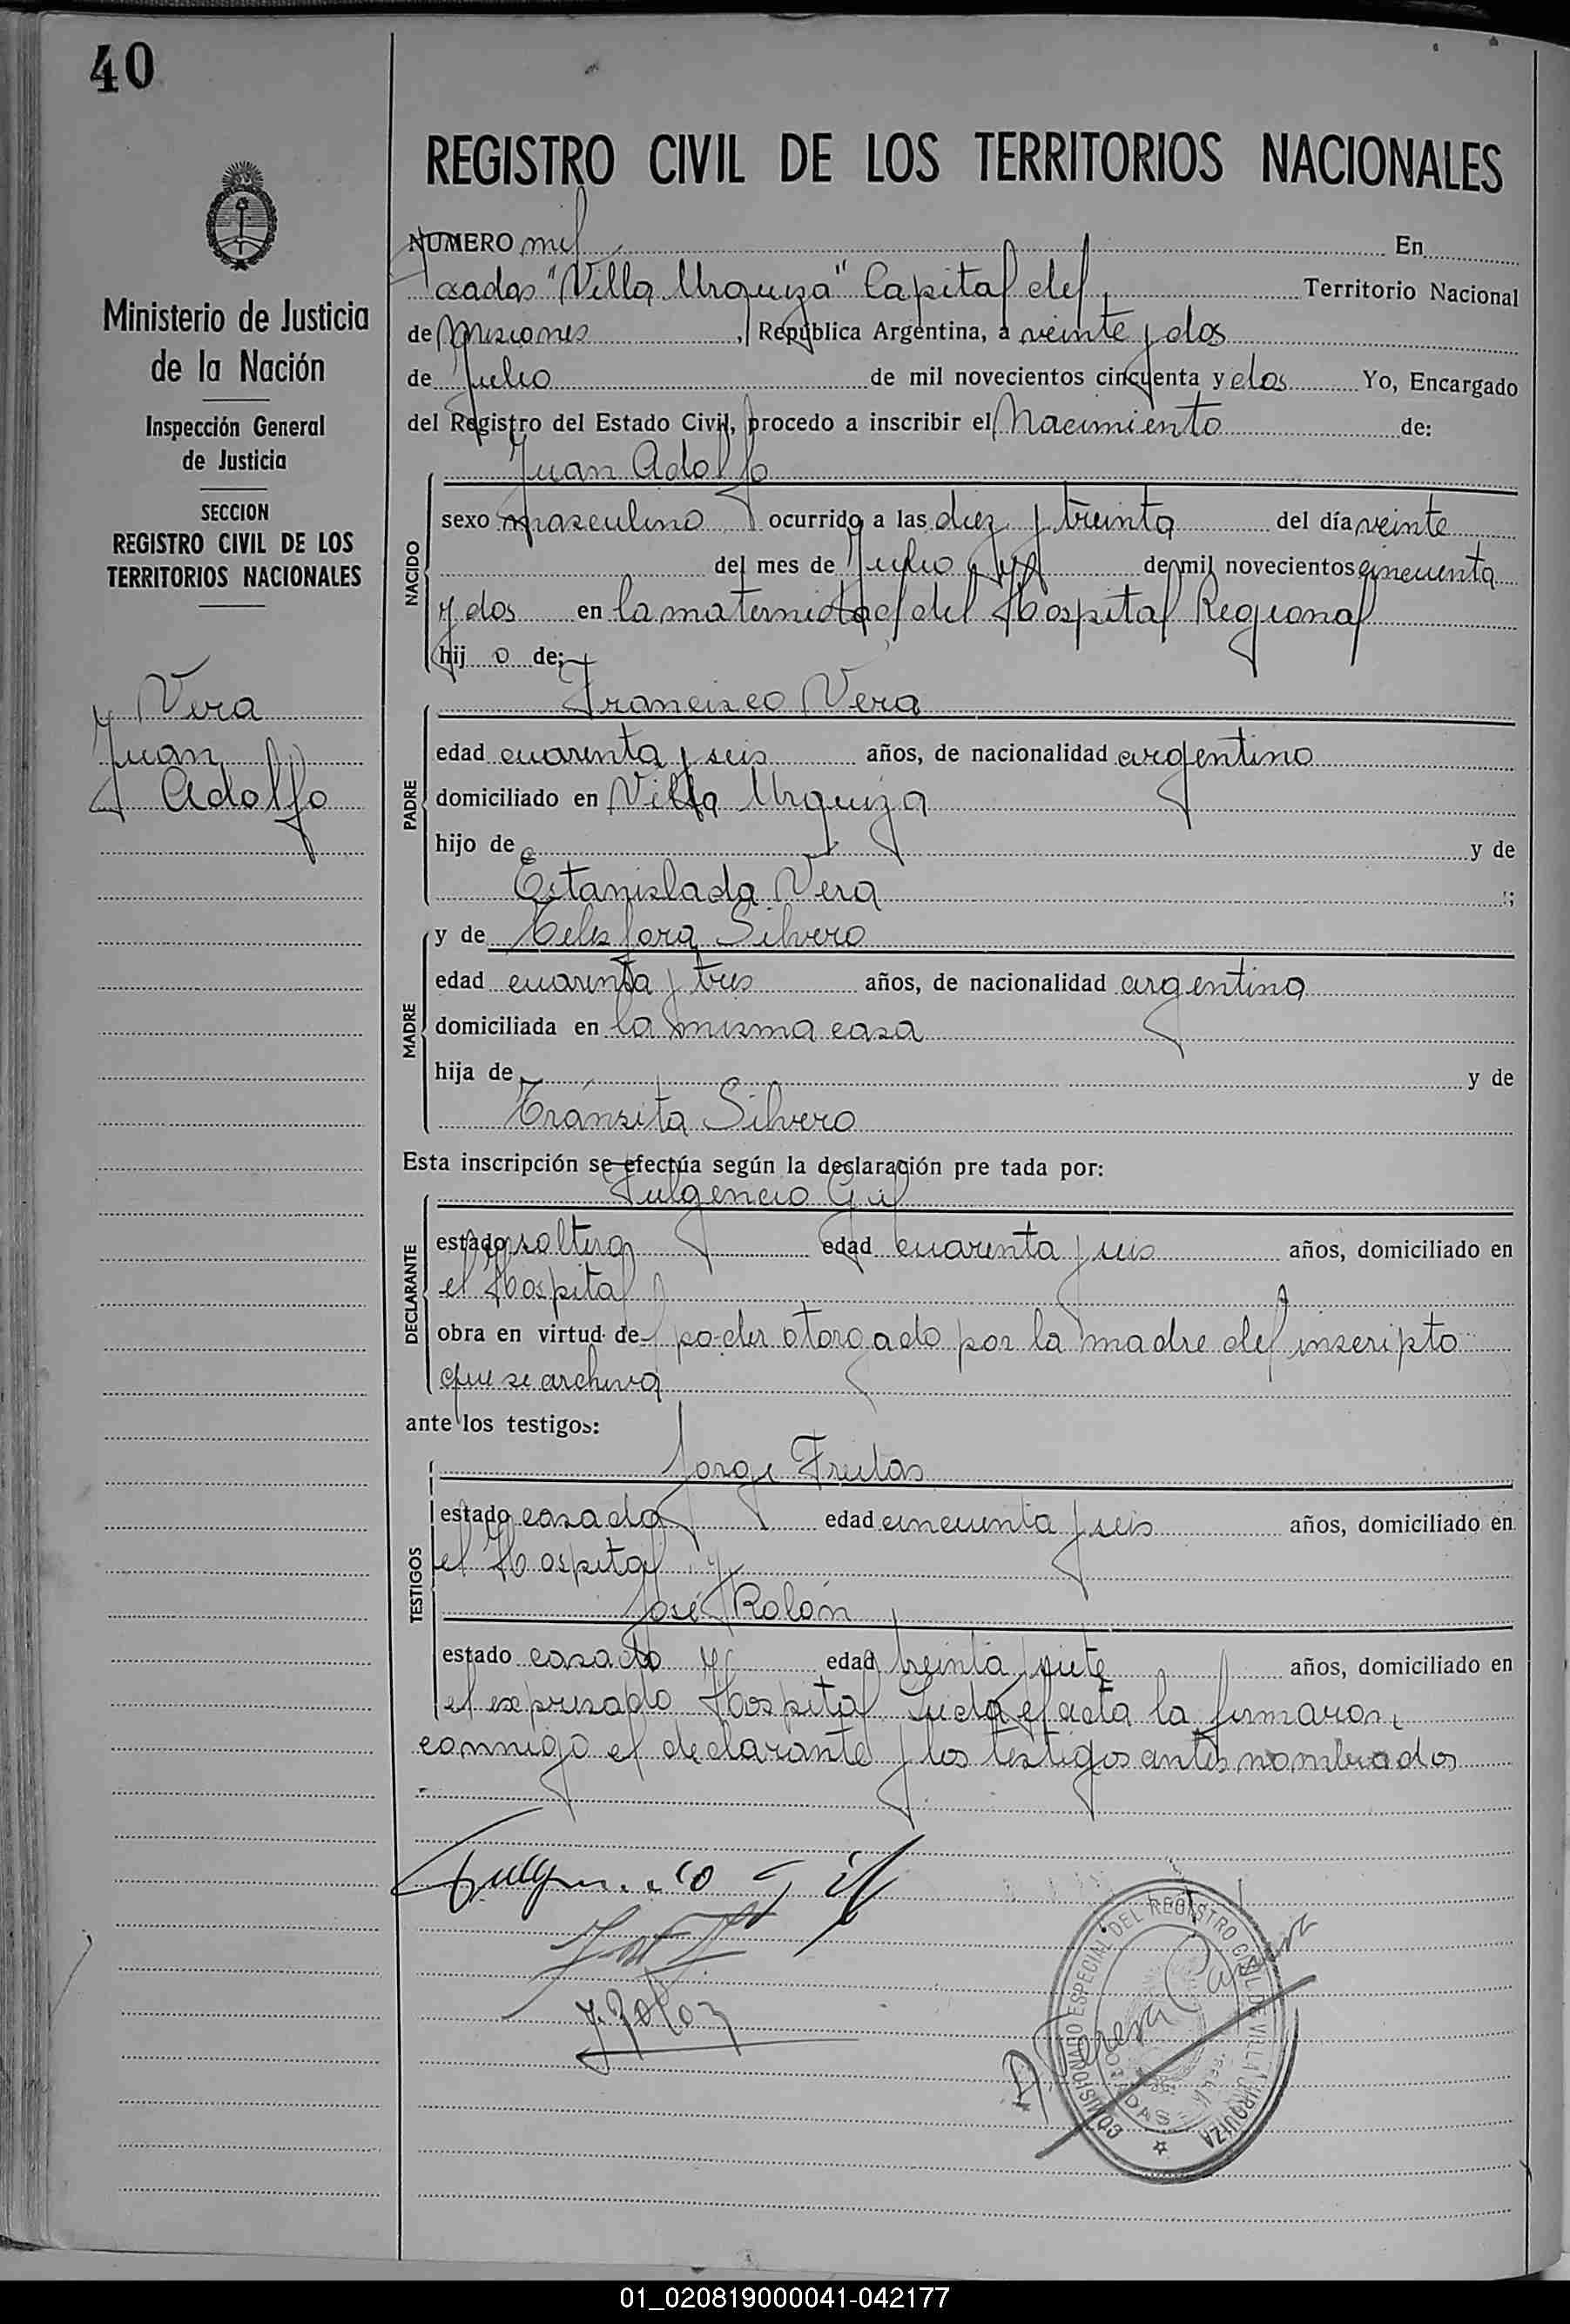 40
REGISTRO CIVIL DE LOS TERRITORIOS NACIONALES
Ministerio de Justicia
de la Nación
Inspección General
de Justicia
SECCION
REGISTRO CIVIL DE LOS
TERRITORIOS NACIONALES
Vera
Juan
Adolfo
NUMERO mil En
Posadas "Villa Urquiza" Capital del Territorio Nacional
de Misiones, República Argentina, a veinte y dos
de Julio de mil novecientos cincuenta y dos Yo, Encargado
del Registro del Estado Civil, procedo a inscribir el Nacimiento de:
Juan Adolfo
NACIDO
sexo masculino ocurrido a las diez y treinta del día veinte
del mes de Julio de mil novecientos cincuenta
y dos en la maternidad del Hospital Regional
hij o de:
Francisco Vera
PADRE
edad cuarenta y seis años, de nacionalidad argentino
domiciliado en Villa Urquiza
hijo de y de
Estanislada Vera ;
MADRE
y de Telesfora Silvero
edad cuarenta y tres años, de nacionalidad argentina
domiciliada en la misma casa
hija de y de
Tránsita Silvero
Esta inscripción se efectúa según la declaración pre tada por:
Fulgencio Gil
DECLARANTE
estado soltero edad cuarenta y seis años, domiciliado en
el Hospital
obra en virtud de poder otorgado por la madre del inscripto
que se archiva
ante los testigos:
Jorge Freitas
TESTIGOS
estado casado edad cincuenta y seis años, domiciliado en
el Hospital y
José Rolón
estado casado edad treinta y siete años, domiciliado en
el expresado Hospital Leida el acta la firmaron
conmigo el declarante y los testigos antes nombrados
Fulgencio Gil
J. Rolon
COMISIONADO ESPECIAL DEL REGISTRO CIVIL DE VILLA URQUIZA
POSADAS
01_020819000041-042177